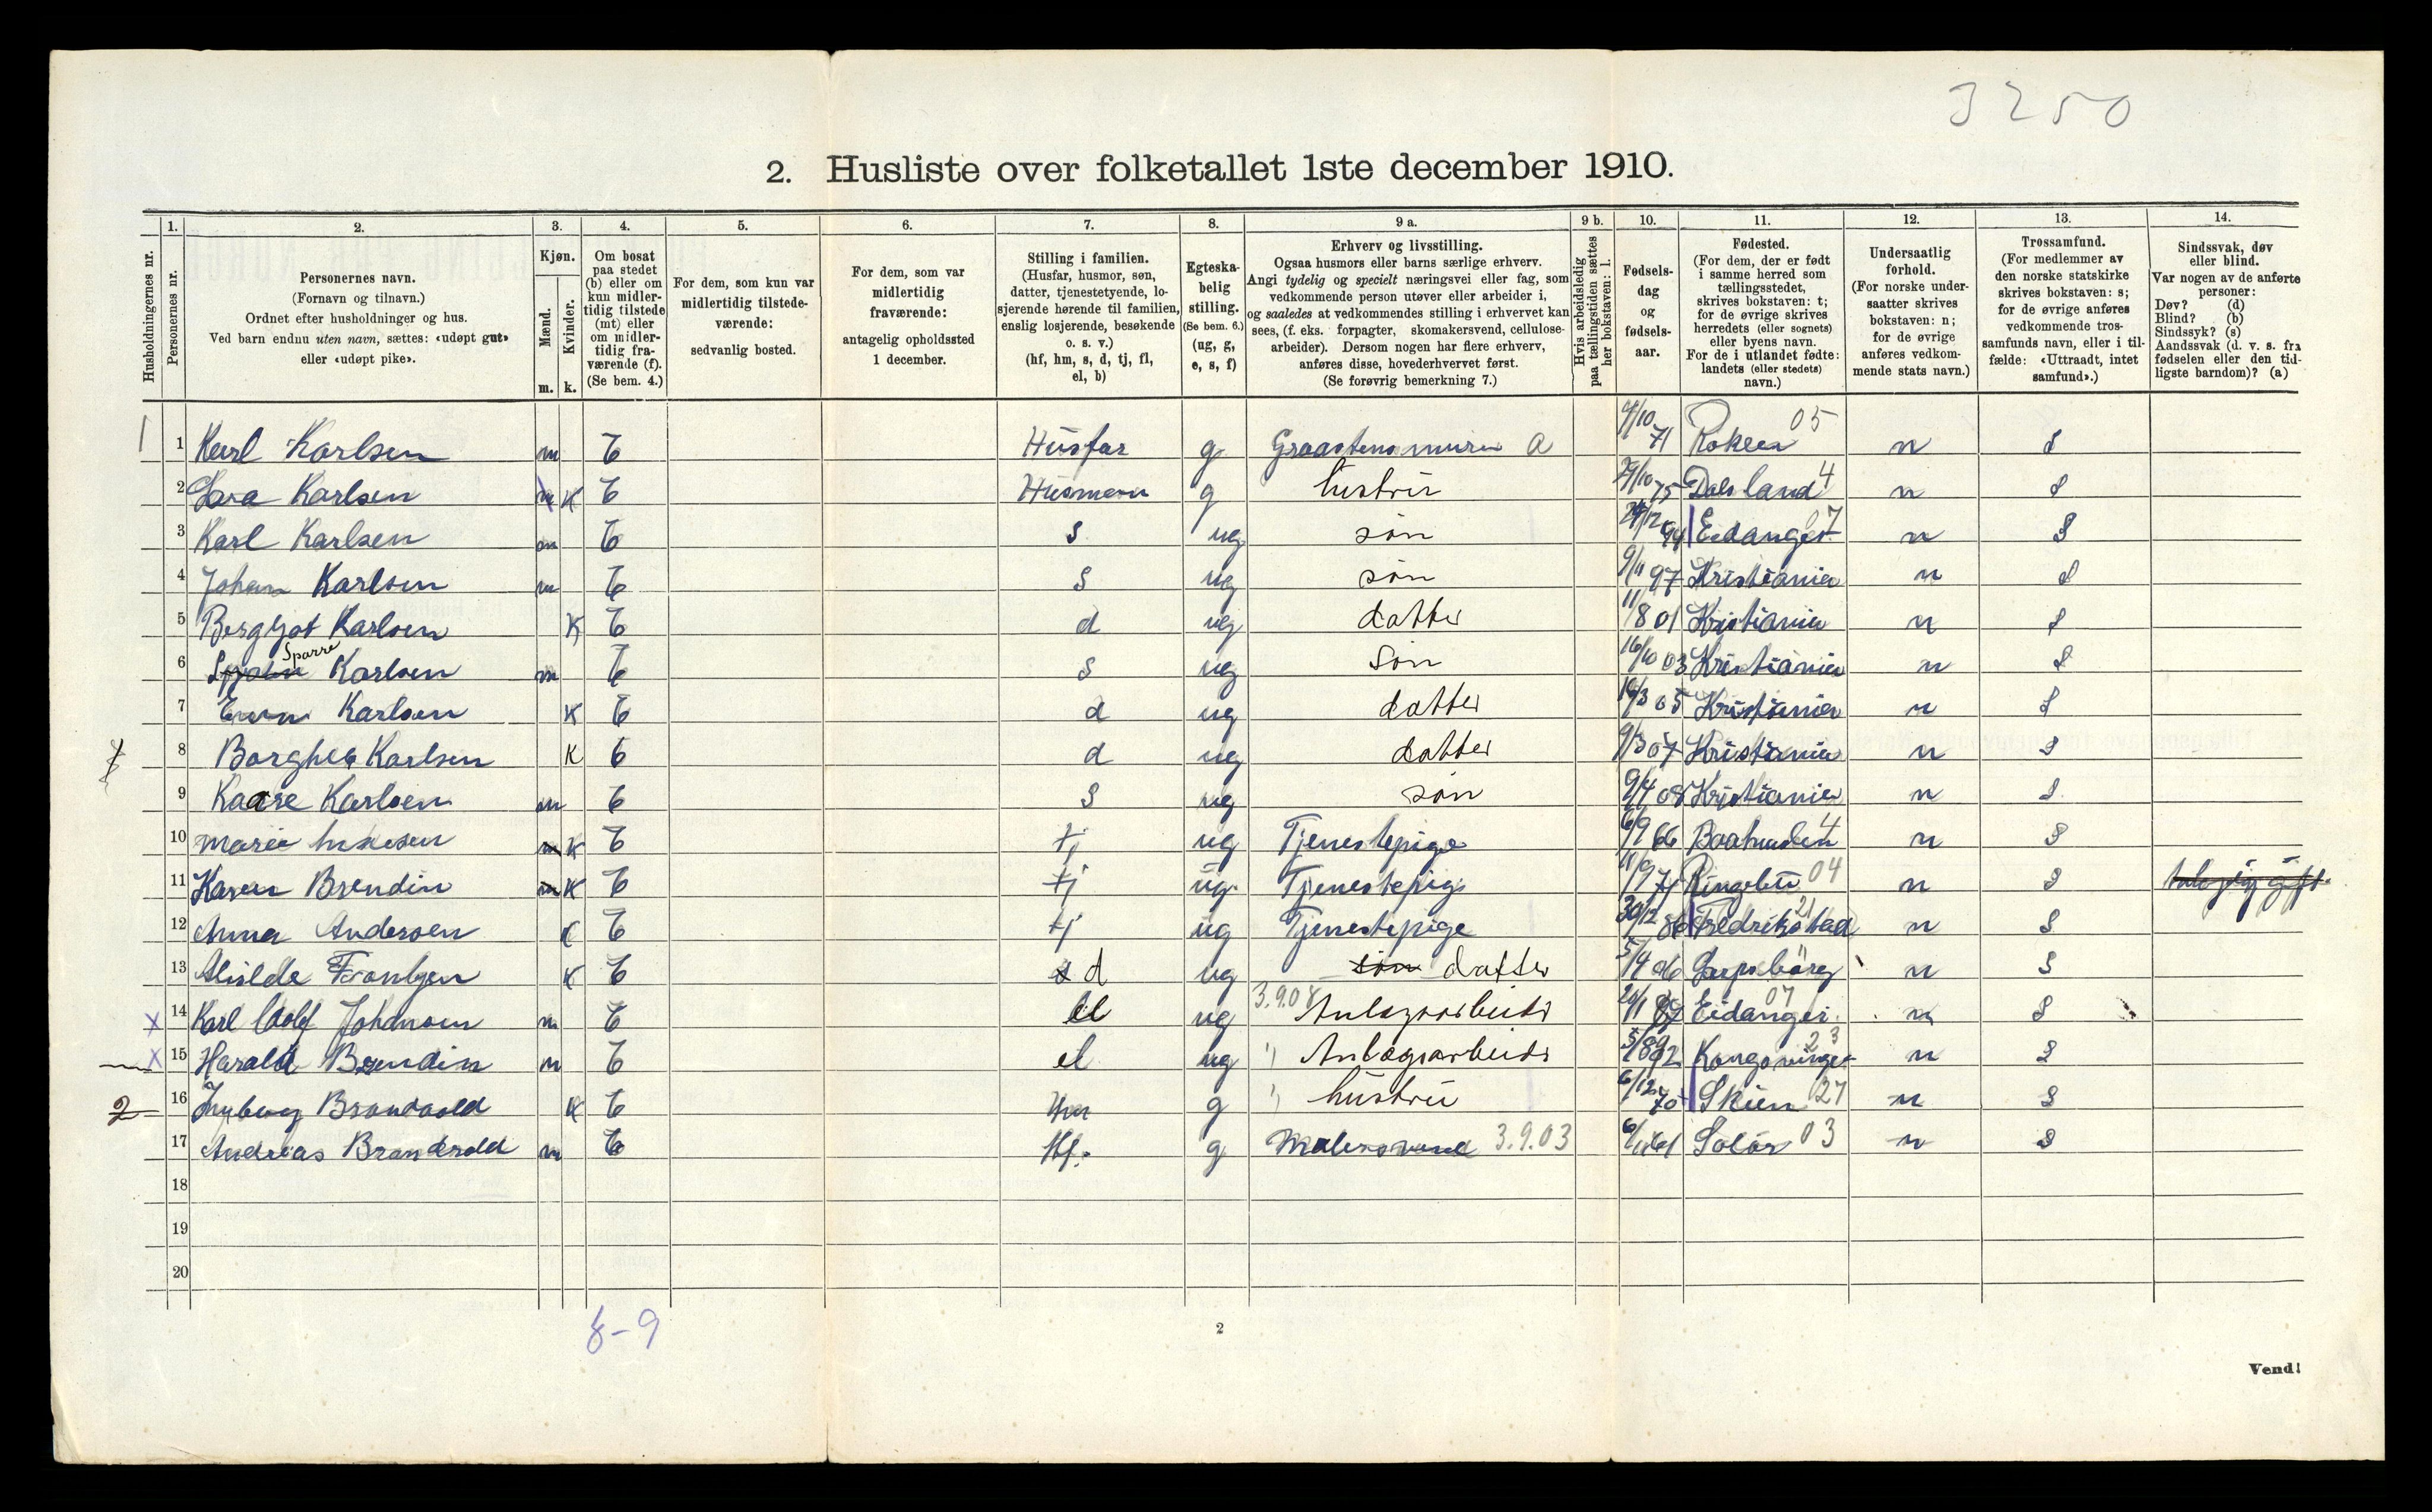 3250
2. Husliste over folketallet 1ste december 1910.
1. 2. 3. 4. 5. 6. 7. 8. 9 a. 9 b. 10. 11. 12. 13. 14.
Husholdningernes nr.
Personernes nr.
Personernes navn.
(Fornavn og tilnavn.)
Ordnet efter husholdninger og hus.
Ved barn endnu uten navn, sættes: «udøpt gut»
eller «udøpt pike».
Kjøn.
Mænd.
Kvinder.
m. k.
Om bosat
paa stedet
(b) eller om
kun midler-
tidig tilstede
(mt) eller
om midler-
tidig fra-
værende (f).
(Se bem. 4.)
For dem, som kun var
midlertidig tilstede-
værende:
sedvanlig bosted.
For dem, som var
midlertidig
fraværende:
antagelig opholdssted
1 december.
Stilling i familien.
(Husfar, husmor, søn,
datter, tjenestetyende, lo-
sjerende hørende til familien,
enslig losjerende, besøkende
o. s. v.)
(hf, hm, s, d, tj, fl,
el, b)
Egteska-
belig
stilling.
(Se bem. 6.)
(ug, g,
e, s, f)
Erhverv og livsstilling.
Ogsaa husmors eller barns særlige erhverv.
Angi tydelig og specielt næringsvei eller fag, som
vedkommende person utøver eller arbeider i,
og saaledes at vedkommendes stilling i erhvervet kan
sees, (f. eks. forpagter, skomakersvend, cellulose-
arbeider). Dersom nogen har flere erhverv,
anføres disse, hovederhvervet først.
(Se forøvrig bemerkning 7.)
Hvis arbeidsledig
paa tællingstiden sættes
her bokstaven: l.
Fødsels-
dag
og
fødsels-
aar.
Fødested.
(For dem, der er født
i samme herred som
tællingsstedet,
skrives bokstaven: t;
for de øvrige skrives
herredets (eller sognets)
eller byens navn.
For de i utlandet fødte:
landets (eller stedets)
navn.)
Undersaatlig
forhold.
(For norske under-
saatter skrives
bokstaven: n;
for de øvrige
anføres vedkom-
mende stats navn.)
Trossamfund.
(For medlemmer av
den norske statskirke
skrives bokstaven: s;
for de øvrige anføres
vedkommende tros-
samfunds navn, eller i til-
fælde: «Uttraadt, intet
samfund».)
Sindssvak, døv
eller blind.
Var nogen av de anførte
personer:
Døv? (d)
Blind? (b)
Sindssyk? (s)
Aandssvak (d. v. s. fra
fødselen eller den tid-
ligste barndom)? (a)
1 1 Karl Karlsen m b Husfar g Graastensmurer a 71 Røken 05 n S
2 Karlsen K b Husmor g hustru 29/10 75 Dalsland 4 n S
3 Karl Karlsen m b S ug søn 94 Eidanger 07 n S
4 Johan Karlsen m b S ug søn 9/11 97 Kristiania n S
5 Bergljot Karlsen K b d ug datter 11/8 01 Kristiania n S
6 Sparre Karlsen m b S ug Søn 16/10 03 Kristiania n S
7 Karlsen K b d ug datter 05 Kristiania n S
8 Borghild Karlsen K b d ug datter 9/3 07 Kristiania n S
9 Kaare Karlsen m b S ug søn 9/4 08 Kristiania n S
10 Marie K b tj ug Tjenestepige 6/9 66 4 n S
11 Karen Brendin K b tj ug Tjenestepige Ringebu 04 n S
12 Anna Andersen K b tj ug Tjenestepige 30/12 86 Fredrikstad 21 n S
13 K b d ug søn datter 5/4 06 Sarpsborg n S
14 Karl Adolf Johansen m b el ug 3.9.08 Anlægsarbeider 87 Eidanger 07 n S
15 Harald Brendin m b el ug " Anlægsarbeider Kongsvinger 23 n S
2 16 Ingborg Brandvold K b Hm g " hustru 6/12 70 Skien 27 n S
17 Andreas Brandvold m b Hf. g Malersvend 3.9.03 Solør 03 n S
18
19
20
8-9
2
Vend!